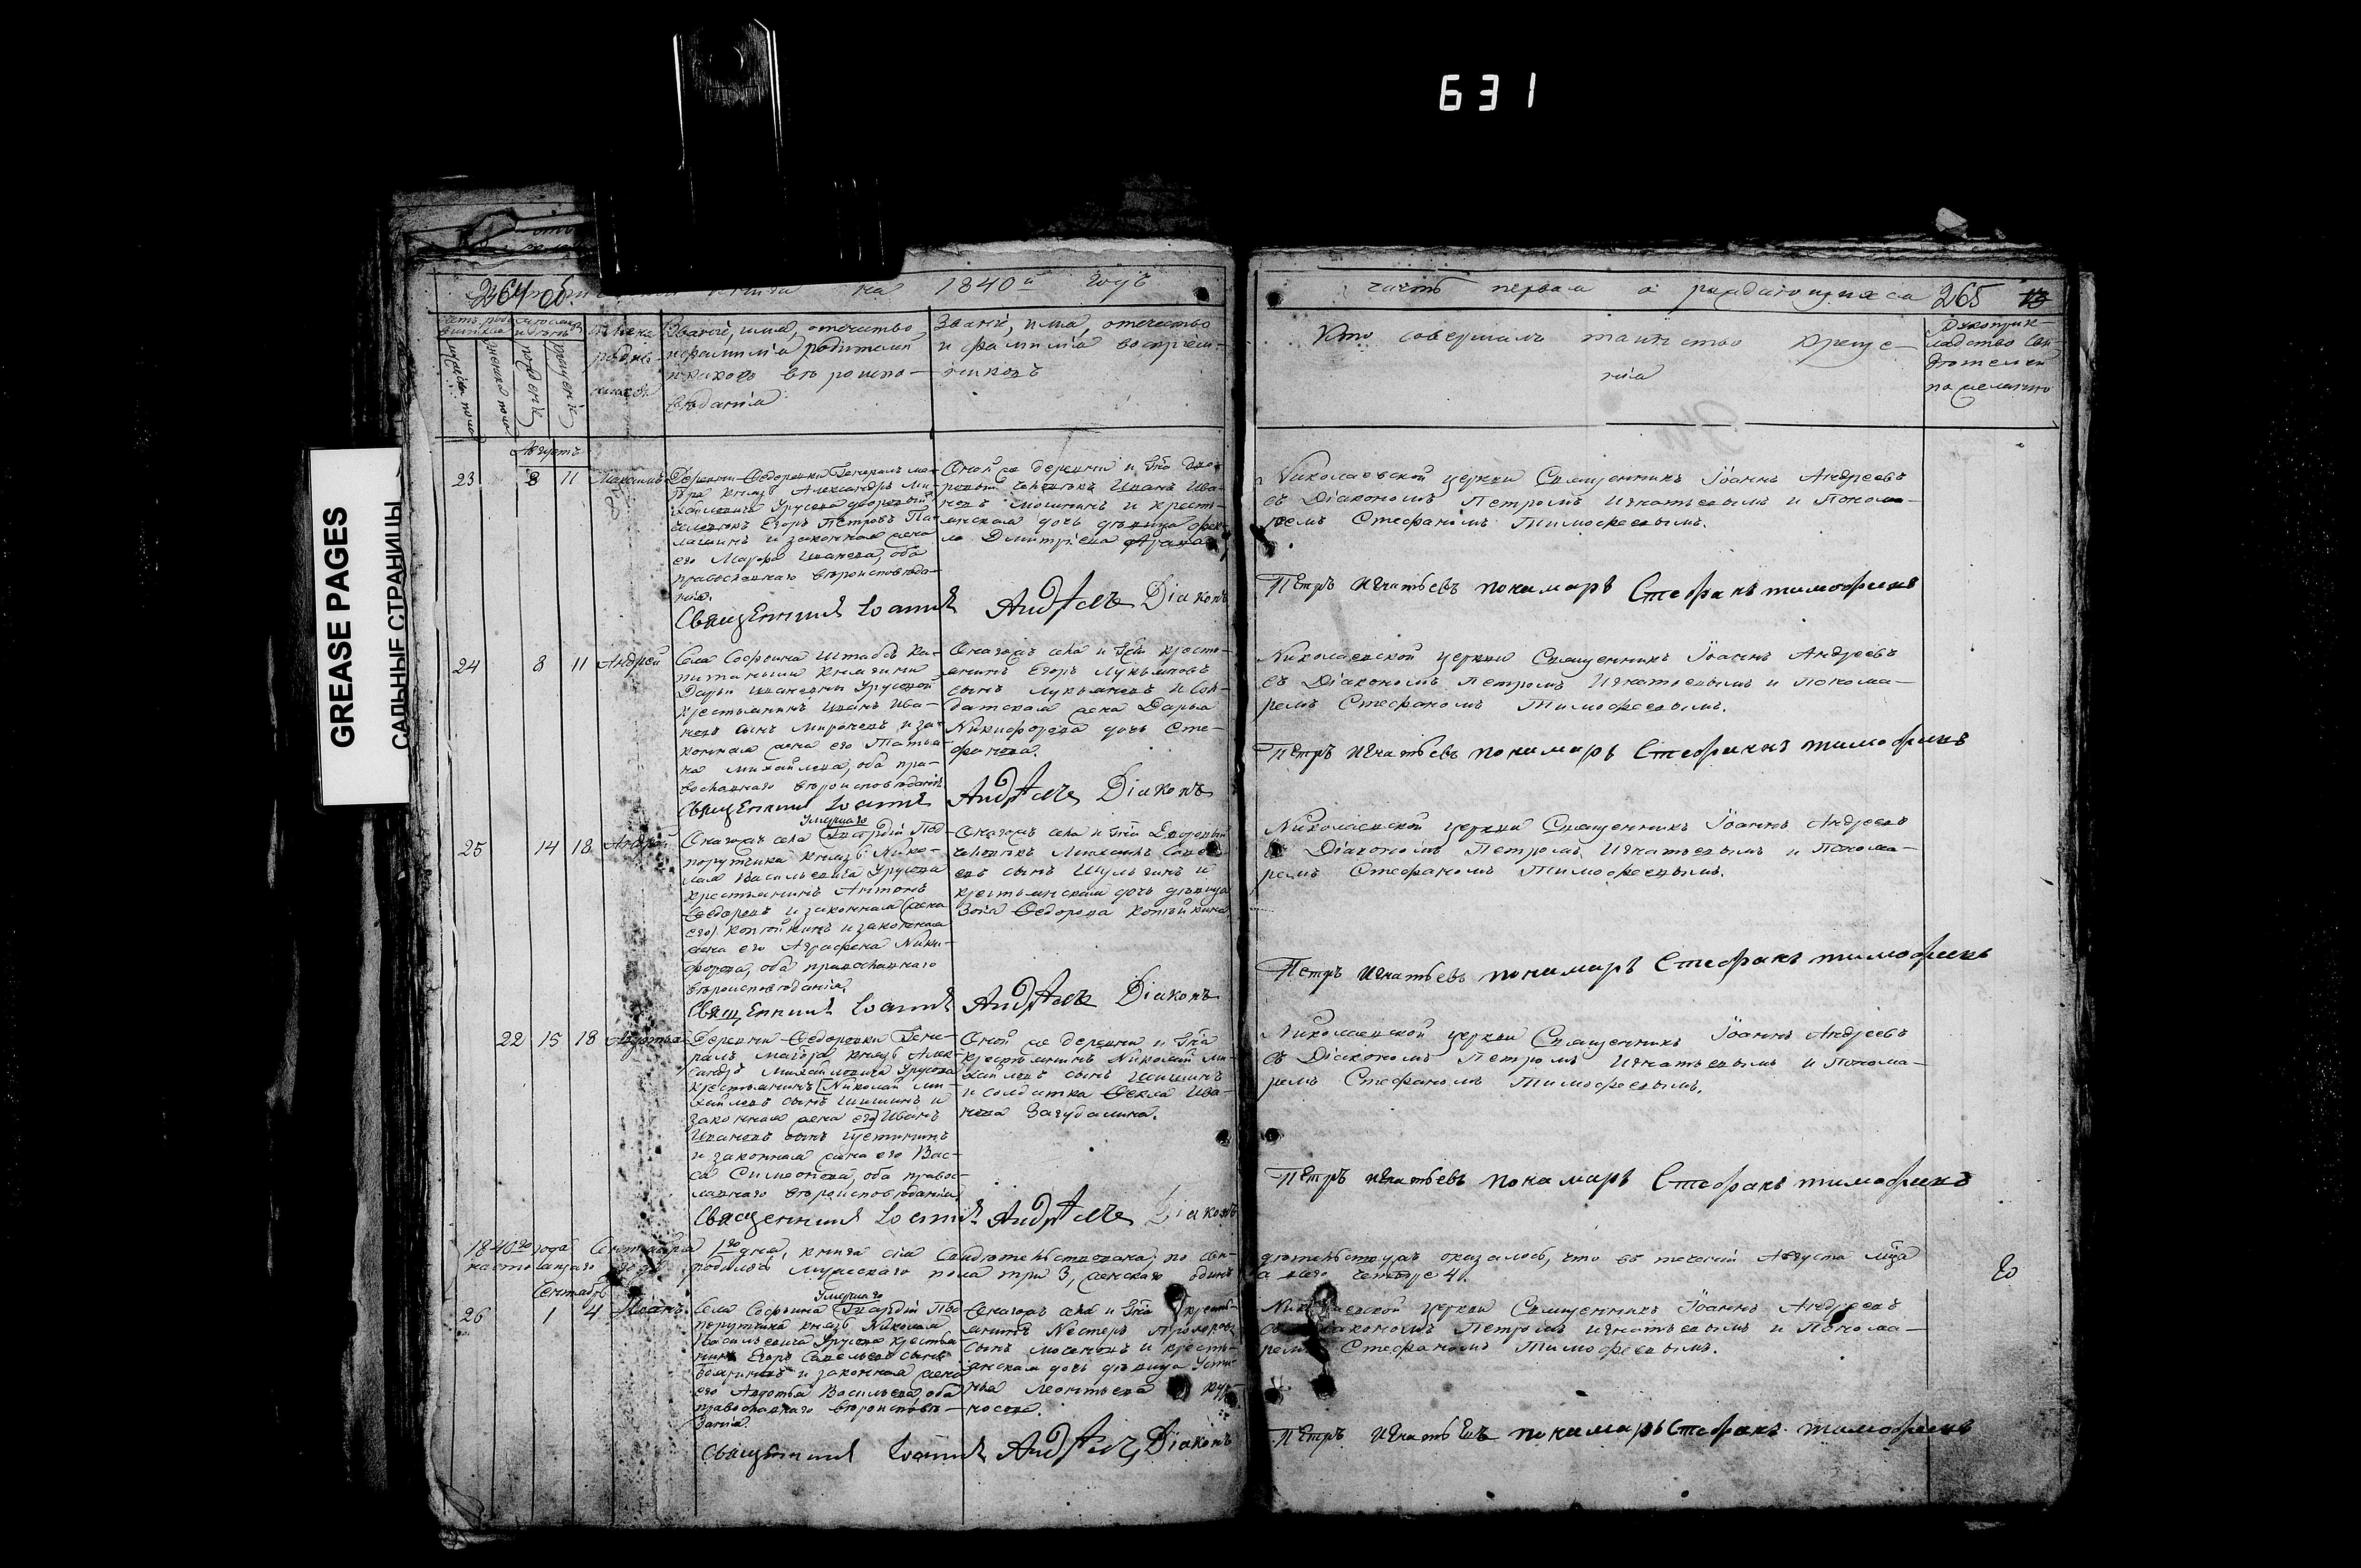 631
GREASE PAGES
САЛЬНЫЕ СТРАНИЦЫ
264 об
книга на 1840й годъ
мужеска пола
женска пола
рожденія
крещенія
Званіе, имя, отечество
и фамилія родителей
и какого вѣроиспо-
вѣданія
Званіе, имя, отечество
и фамилія воспріем-
никовъ
Августъ
23 8 11 Максимъ
Деревни Ѳедоровки Генералъ ма-
іора Князь Александръ Ми-
хайловича Урусова дворовый
человѣкъ Егоръ Петровъ Па-
лагинъ и законная жена
его Марфа Иванова, оба
православнаго вѣроисповѣда-
нія.
Оной же деревни и Гна дво-
ровый человѣкъ Иванъ Ива-
новъ и крест-
янская дочь дѣвица Фек-
ла Дмитріева
Священникъ Іоаннъ Андреевъ Діаконъ
24 8 11 Андрей
Села Софьина Штабсъ Ка-
питанши Княгини
Дарьи Ивановны Урусовой
крестьянинъ Иванъ Ива-
новъ сынъ Мироновъ и за-
конная жена его Татья-
на Михайлова, оба пра-
вославнаго вѣроисповѣданія
Онагожъ села и Гжи кресть-
янинъ Егоръ Лукьяновъ
сынъ Лукьяновъ и Сол-
датская жена Дарья
Никифорова дочь Сте-
фанова.
Священникъ Іоаннъ Андреевъ Діаконъ
умершаго
25 14 18 Андрей
Онагожъ села Гвардіи Под-
порутчика князь Нико-
лая Васильевича Урусова
крестьянинъ Антонъ
Ѳедоровъ и законная жена
его Копѣйкинъ и законная
жена его Аграфена Ники-
форова, оба православнаго
вѣроисповѣданія.
Онагожъ села и Гна Дворовый
человѣкъ Михаилъ
евъ сынъ Шульгинъ и
крестьянская дочь дѣвица
Зоя Ѳедорова Копѣйкина
Священникъ Іоаннъ Андреевъ Діаконъ
22 15 18 Авдотья
Деревни Ѳедоровки Гене-
ралъ маіора князь Алек-
сандръ Михайловича Урусова
крестьянинъ Николай Ми-
хайловъ сынъ Шишинъ и
законная жена его Иванъ
Ивановъ сынъ Щетининъ
и законная жена его Вас-
са Симеонова, оба правос-
лавнаго вѣроисповѣданія
Оной же деревни и Гна
крестьянинъ Николай Ми-
хайловъ сынъ Шишинъ
и солдатка Ѳекла Ива-
нова Загудалина.
Священникъ Іоаннъ Андреевъ Діаконъ
1840го года Сентября 1го дня, книга сія Свидѣтельствована, по сви-
настоящаго года родилось мужескаго пола три 3, женскаго одинъ
Сентябрь
умершаго
26 1 4 Иванъ
Села Софьина Гвардіи Под-
порутчика князь Николая
Васильевича Урусова крестья-
нинъ Егоръ Савельевъ сынъ
и законная жена
его Авдотья Васильева, оба
православнаго вѣроисповѣ-
данія.
Онагожъ села и Гна кресть-
янинъ Нестеръ Прохоровъ
сынъ Мосановъ и кресть-
янская дочь дѣвица Усти-
нья Леонтьева кур-
носова.
Священникъ Іоаннъ Андреевъ Діаконъ
часть первая о раждающихся 265
Кто совершалъ таинство креще-
нія
Рукоприк-
ладство сви-
дѣтелей
по желанію
Николаевской церкви Священникъ Іоаннъ Андреевъ
съ Діакономъ Петромъ Игнатьевымъ и Понома-
ремъ Стефаномъ Тимофеевымъ.
Петръ Игнатьевъ пономарь Стефанъ тимофеевъ
Николаевской церкви Священникъ Іоаннъ Андреевъ
съ Діакономъ Петромъ Игнатьевымъ и Понома-
ремъ Стефаномъ Тимофеевымъ.
Петръ Игнатьевъ пономарь Стефанъ тимофеевъ
Николаевской церкви Священникъ Іоаннъ Андреевъ
съ Діакономъ Петромъ Игнатьевымъ и Понома-
ремъ Стефаномъ Тимофеевымъ.
Петръ Игнатьевъ пономарь Стефанъ тимофеевъ
Николаевской церкви Священникъ Іоаннъ Андреевъ
съ Діакономъ Петромъ Игнатьевымъ и Понома-
ремъ Стефаномъ Тимофеевымъ.
Петръ Игнатьевъ пономарь Стефанъ тимофеевъ
дѣтельству оказалось, что въ теченіи Августа мца
а всего четыре 4.
Николаевской церкви Священникъ Іоаннъ Андреевъ
съ Діакономъ Петромъ Игнатьевымъ и Понома-
ремъ Стефаномъ Тимофеевымъ.
Петръ Игнатьевъ пономарь Стефанъ тимофеевъ